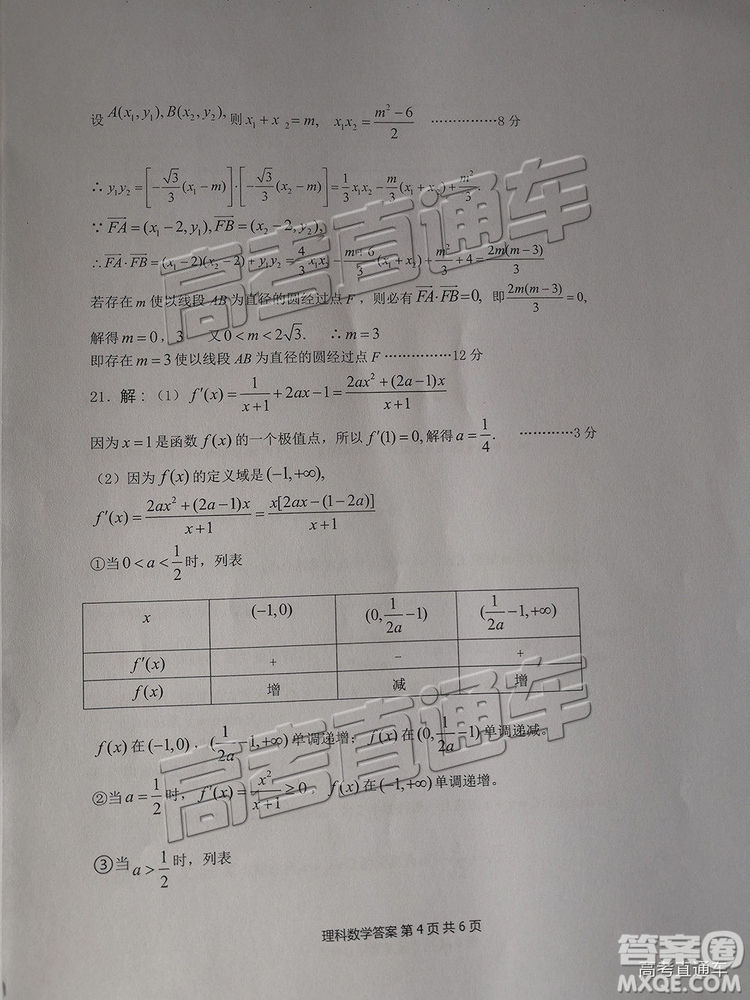 设 A(x₁, y₁), B(x₂, y₂), 则 x₁ + x ₂ = m, x₁x₂ = \frac{m²−6}{2} ……………8 分
∴ y₁y₂ = [−\frac{√3}{3}(x₁ − m)]·[−\frac{√3}{3}(x₂ − m)] = \frac{1}{3}x₁x₂ − \frac{m}{3}(x₁ + x₂) + \frac{m²}{3}.
∵ \overline{FA} = (x₁ − 2, y₁), \overline{FB} = (x₂ − 2, y₂),
∴ \overline{FA}·\overline{FB} = (x₁ − 2)(x₂ − 2) + y₁y₂ = \frac{4}{3}x₁x₂ − \frac{m+6}{3}(x₁ + x₂) + \frac{m²}{3} + 4 = \frac{2m(m−3)}{3}
若存在 m 使以线段 AB 为直径的圆经过点 F ，则必有 \overline{FA}·\overline{FB} = 0, 即 \frac{2m(m−3)}{3} = 0,
解得 m = 0，3 又 0 < m < 2√3. ∴ m = 3
即存在 m = 3 使以线段 AB 为直径的圆经过点 F ……………12 分
21．解：（1） f′(x) = \frac{1}{x+1} + 2ax − 1 = \frac{2ax² + (2a−1)x}{x+1}
因为 x = 1 是函数 f(x) 的一个极值点，所以 f′(1) = 0, 解得 a = \frac{1}{4}. …………3 分
（2）因为 f(x) 的定义域是 (−1, +∞),
f′(x) = \frac{2ax² + (2a−1)x}{x+1} = \frac{x[2ax − (1−2a)]}{x+1}
①当 0 < a < \frac{1}{2} 时，列表
x (−1, 0) (0, \frac{1}{2a} − 1) (\frac{1}{2a} − 1, +∞)
f′(x) + − +
f(x) 增 减 增
f(x) 在 (−1, 0)，(\frac{1}{2a} − 1, +∞) 单调递增；f(x) 在 (0, \frac{1}{2a} − 1) 单调递减。
②当 a = \frac{1}{2} 时，f′(x) = \frac{x²}{x+1} ≥ 0，f(x) 在 (−1, +∞) 单调递增。
③当 a > \frac{1}{2} 时，列表
理科数学答案 第 4 页 共 6 页
高考直通车
高考直通车
答案卷
高考直通车
MXQE.COM